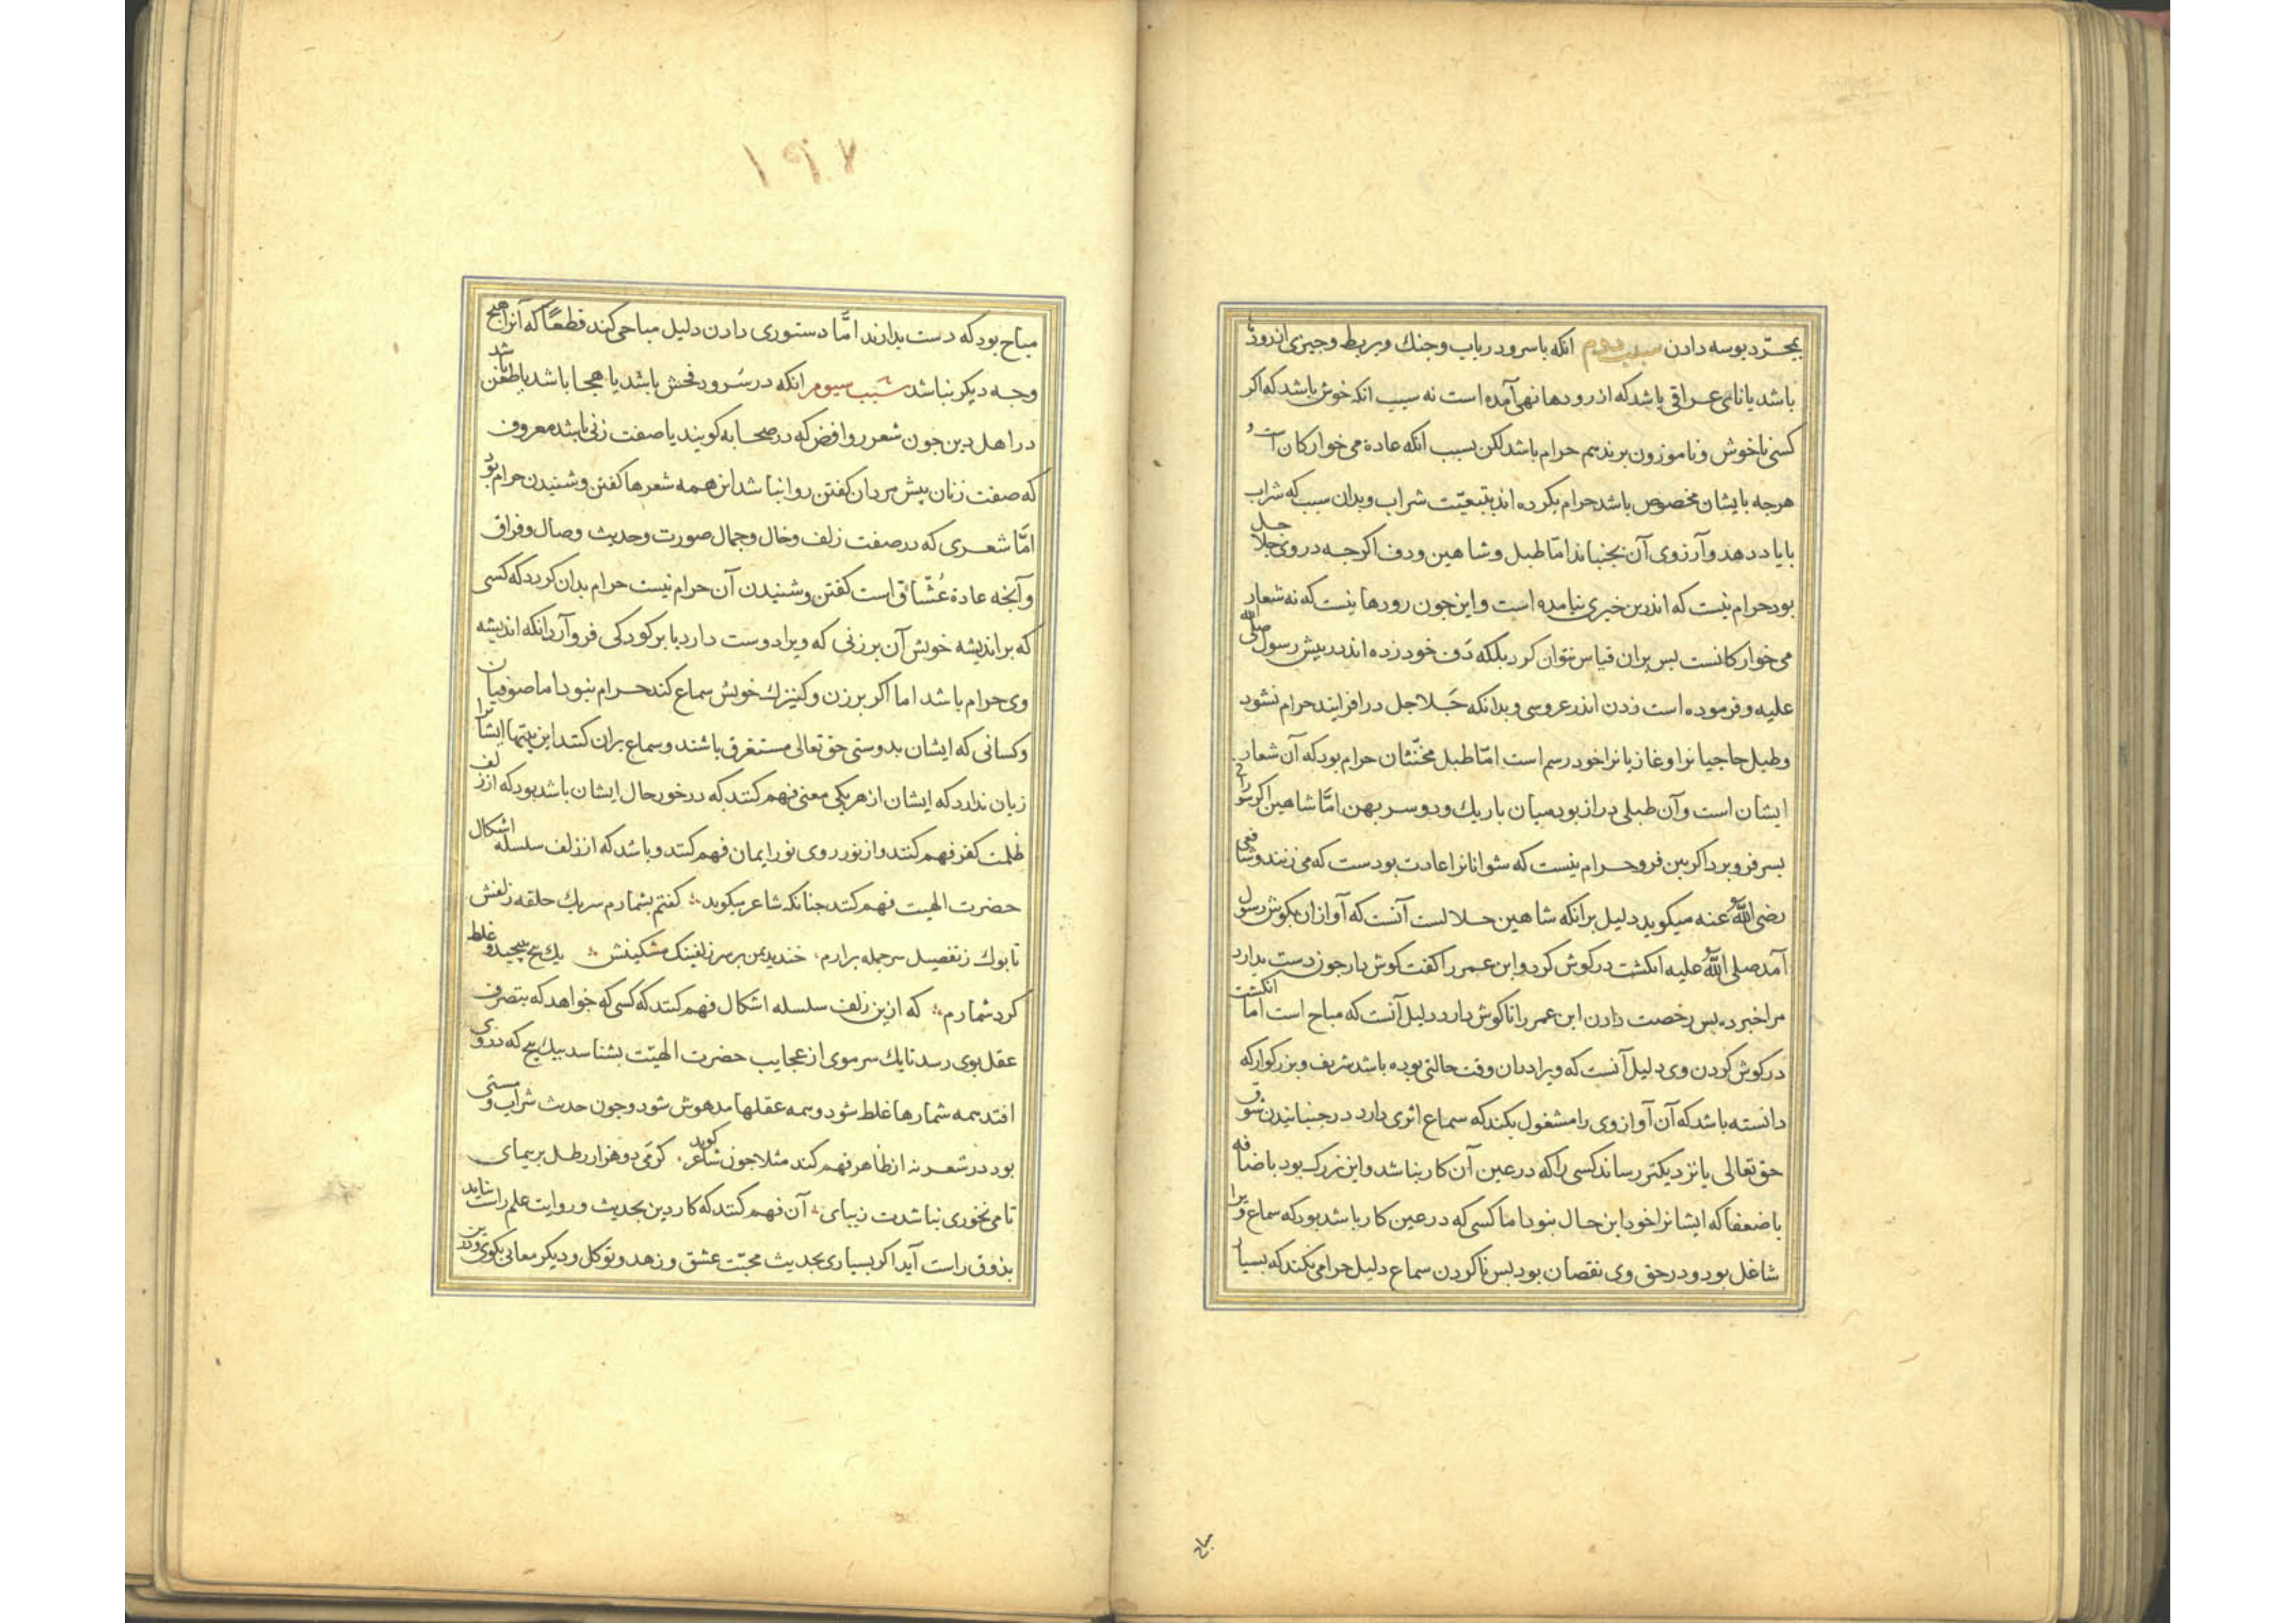 بمجرّد بوسه دادن سبب دوم انکه با سرود رباب وجنك وبربط وجیزی از رودها
باشد یا نای عراقی باشد که از رودها نهی آمده است نه سبب انکه خوش باشد که اکر
کسی ناخوش وناموزون بزند هم حرام باشد لکن بسبب انکه عادة می خوارکان است و
هرجه بایشان مخصوص باشد حرام بکرده اند بتبعیّت شراب وبدان سبب که شراب
بایاد دهد وآرزوی آن بجنباند امّا طبل وشاهین ودف اکرجه در وی جلاجل
بود حرام نیست که اندرین خبری نیامده است واین جون رودها نیست که نه شعار
می خوارکانست بس بران قیاس نتوان کرد بلکه دَف خود زده اند در بیش رسول صلی الله
علیه وفرموده است زدن اندر عروسی وبدانکه جَلاجل در افزایند حرام نشود
وطبل حاجیانرا وغازیانرا خود رسم است امّا طبل مخنّثان حرام بود که آن شعار
ایشان است وآن طبلی دراز بود میان باریك ودو سر بهن امَّا شاهین اکر
بسر فرو برد اکر بین فرو حرام نیست که شوانانرا عادت بودست که می زنند وشافعی
رضی اللّٰه عنه میکوید دلیل برانکه شاهین حلالست آنست که آواز ان بکوش رسول
آمد صلی اللّٰه علیه انکشت در کوش کرد وابن عمر را کفت کوش دار جون دست بدارد
مرا خبر ده بس رخصت دادن ابن عمر را تا کوش دارد دلیل آنست که مباح است اما انکشت
در کوش کردن وی دلیل آنست که ویرا دران وقت حالتی بوده باشد شریف وبزرکوار که
دانسته باشد که آن آواز وی را مشغول بکند که سماع اثری دارد در جنبانیدن شوق
حق تعالی یا نزدیکتر رساند کسی را که در عین آن کار نباشد واین بزرك بود باضافه
با ضعفا که ایشانرا خود این حال نبود اما کسی که در عین کار باشد بود که سماع ویرا
شاغل بود ودر حق وی نقصان بود بس ناکردن سماع دلیل حرامی نکند که بسیار
مباح
۱۹۷
مباح بود که دست بدارند امَّا دستوری دادن دلیل مباحی کند قطعًا که آنرا هیج
وجه دیکر نباشد سَبب سیوم انکه در سُرود فحش باشد یا هجا باشد یا طعن باشد
در اهل دین جون شعر روافض که در صحابه کویند یا صفت زنی باشد معروف
که صفت زنان بیش مردان کفتن روا نباشد این همه شعرها کفتن وشنیدن حرام بُود
امَّا شعری که در صفت زلف وخال وجمال صورت وحدیث وصال وفراق
وآنجه عادة عُشّاق است کفتن وشنیدن آن حرام نیست حرام بدان کردد که کسی
که بر اندیشه خویش آن بر زنی که ویرا دوست دارد یا بر کودکی فرو آرد انکه اندیشه
وی حرام باشد اما اکر بر زن وکنیزك خویش سماع کند حرام نبود اما صوفیان
وکسانی که ایشان بدوستی حق تعالی مستغرق باشند وسماع بران کنند این بیتها ایشانرا
زیان ندارد که ایشان از هر یکی معنی فهم کنند که در خور حال ایشان باشد بود که از زلف
ظلمت کفر فهم کنند واز نور روی نور ایمان فهم کنند وباشد که از زلف سلسله اشکال
حضرت الهیت فهم کنند جنانکه شاعر میکوید کفتم بشمارم سر یك حلقه زلفش
تا بوك ز تفصیل سر جمله برارم خندید بمن بر سر زلفینك مشکینش یك بیج بیجید وغلط
کرد شمارم که ازین زلف سلسله اشکال فهم کنند که کسی که خواهد که بتصرف
عقل بوی رسد تا یك سر موی از عجایب حضرت الهیّت بشناسد بیك بیج که در وی
افتد همه شمارها غلط شود وهمه عقلها مدهوش شود وجون حدیث شراب ومستی
بود در شعر نه از ظاهر فهم کند مثلا جون شاعر کوید کر می دو هزار رطل بر بیمای
تا می نخوری نباشدت زیبای آن فهم کنند که کار دین بحدیث وروایت علم راست نیاید
بذوق راست آید اکر بسیاری بحدیث محبّت عشق وزهد وتوکل ودیکر معانی بکوی ودرین